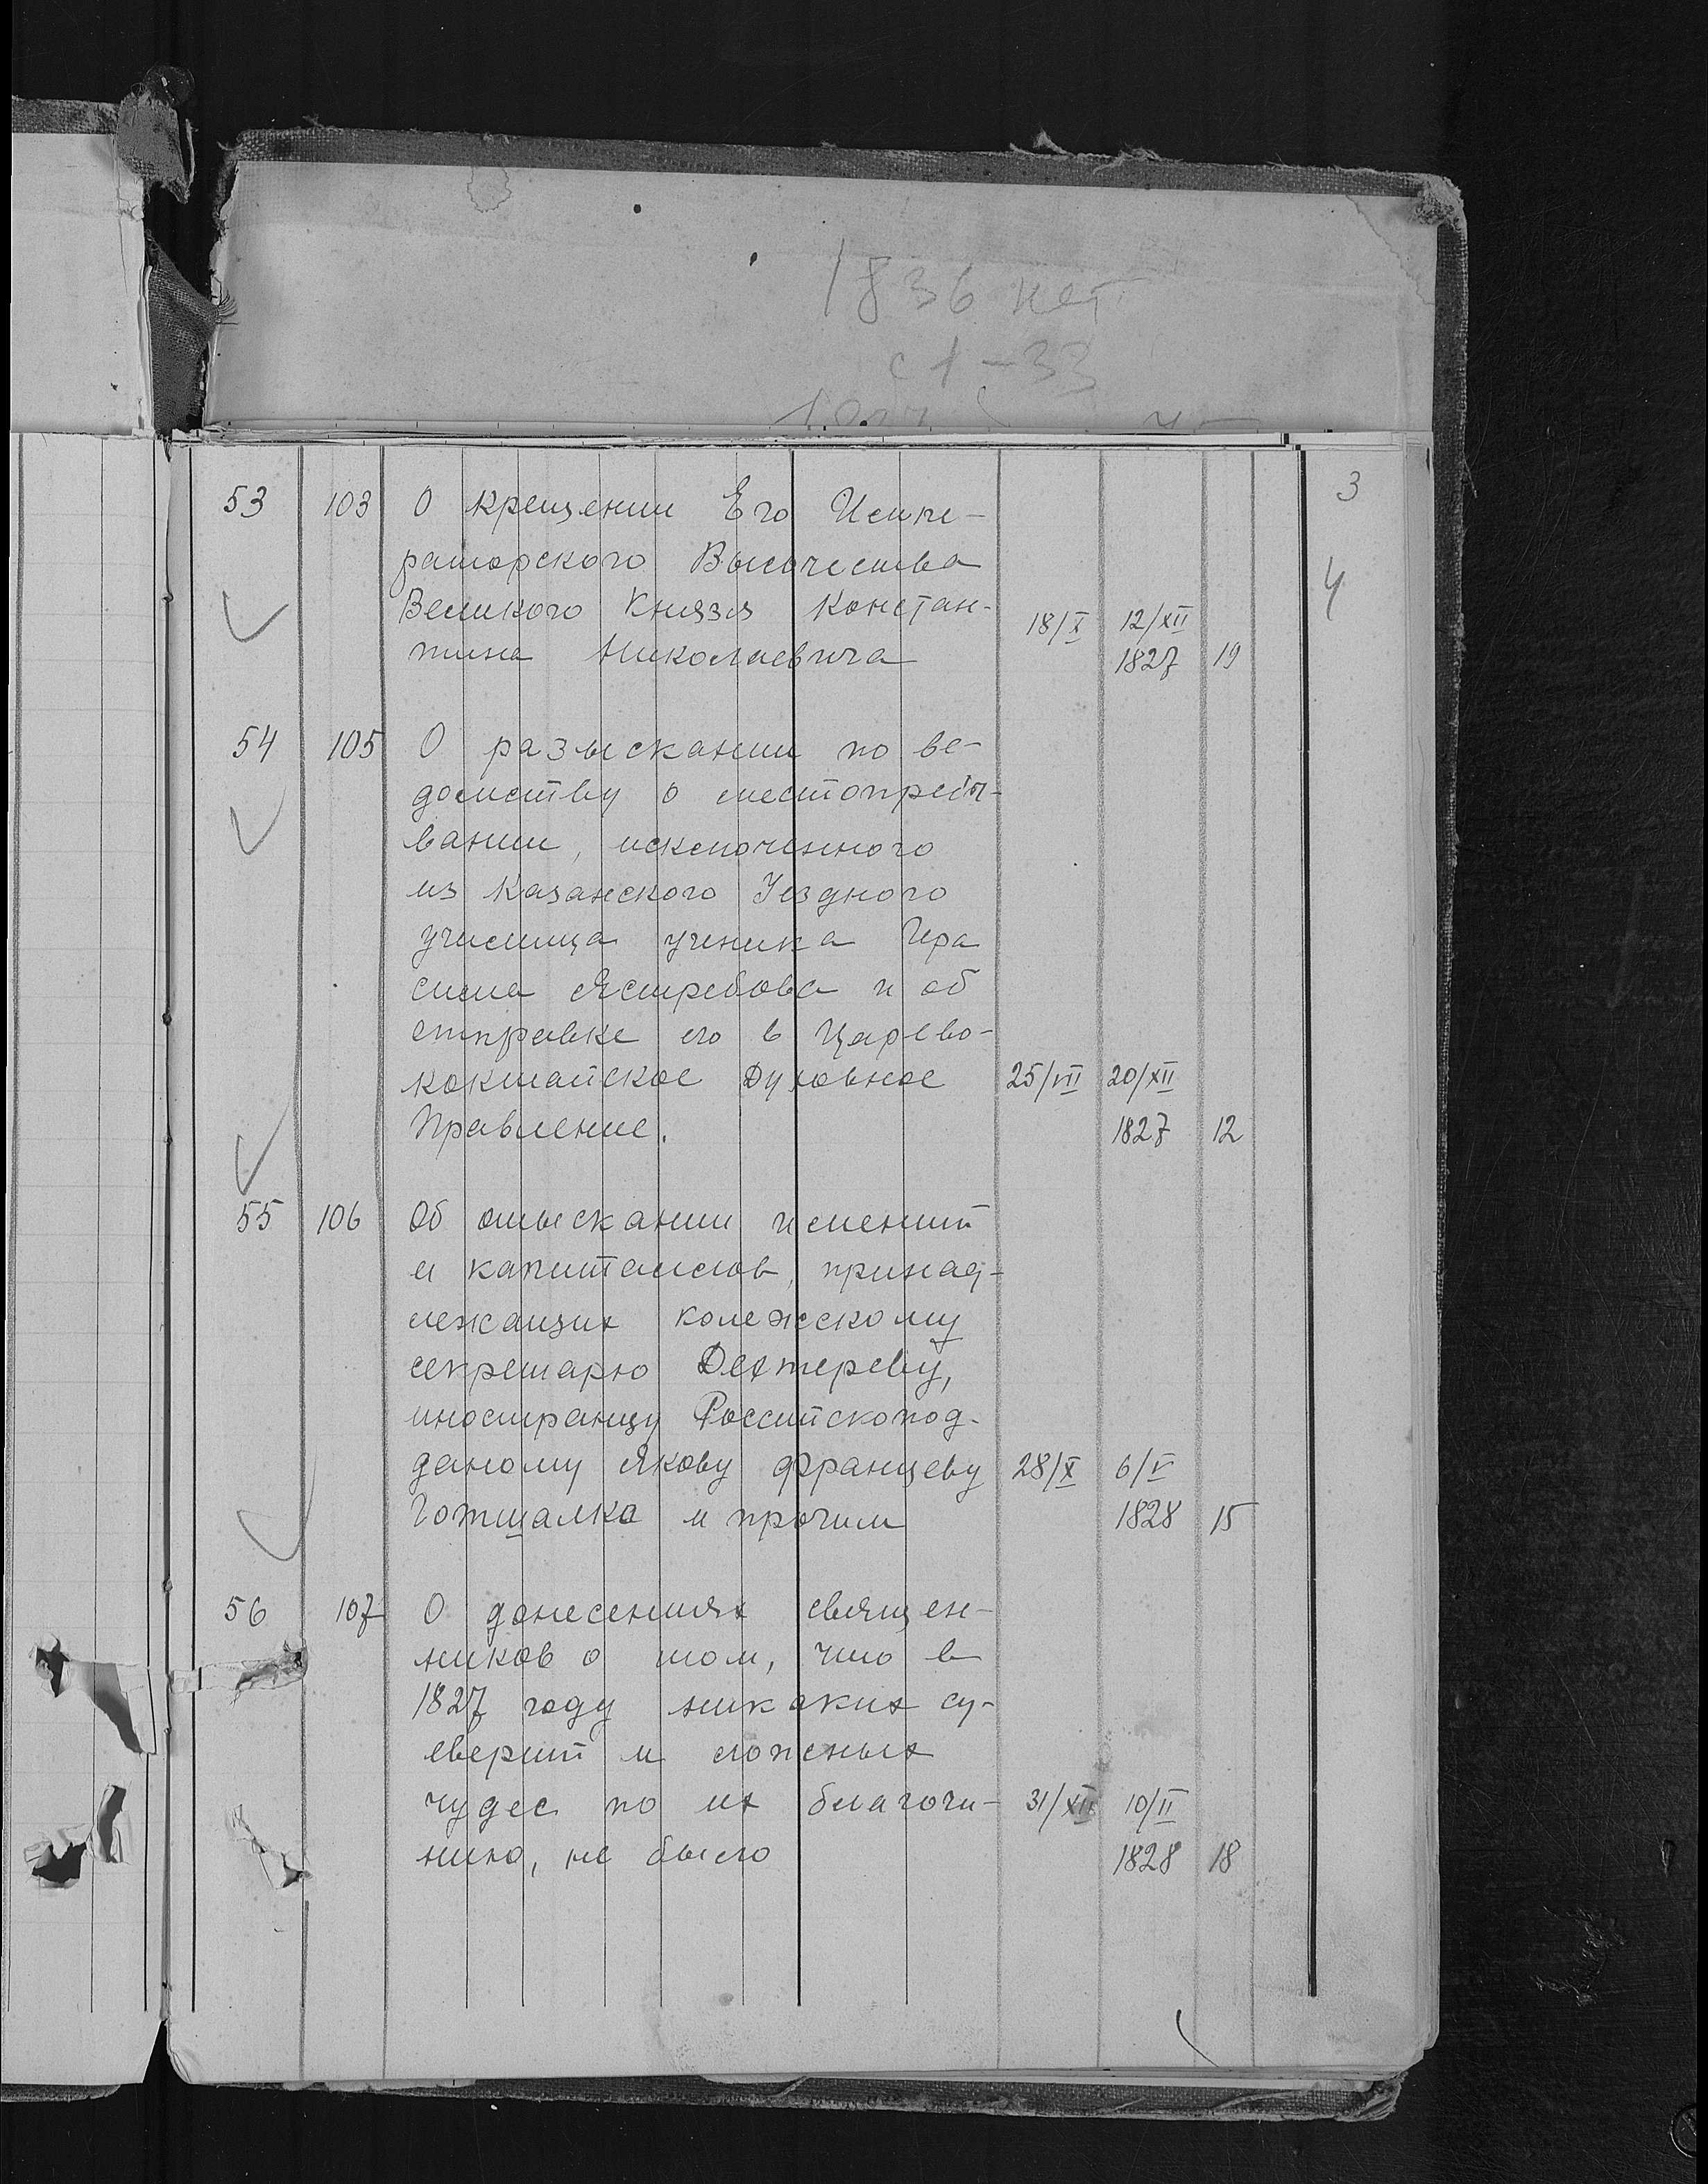 1836 нет
с 1-33
3
4
53 103 О крещении Его Импе-
раторского Высочества
Великого Князя Констан- 18/X 12/XII
тина Николаевича 1827 19
54 105 О разыскании по ве-
домству о местопребы-
вании, исключенного
из Казанского Уездного
училища ученика Гера
сима Ястребова и об
отправке его в Царево-
кокшайское Духовное 25/VII 20/XII
Правление. 1827 12
55 106 Об отыскании имений
и капиталов, принад-
лежащих колежскому
секретарю Дехтереву,
иностранцу Российскопод-
даному Якову Францеву 28/X 6/V
Готшалка и прочим 1828 15
56 107 О донесениях священ-
ников о том, что в
1827 году никаких су-
еверий и ложных
чудес по их благочи- 31/XII 10/II
нию, не было 1828 18